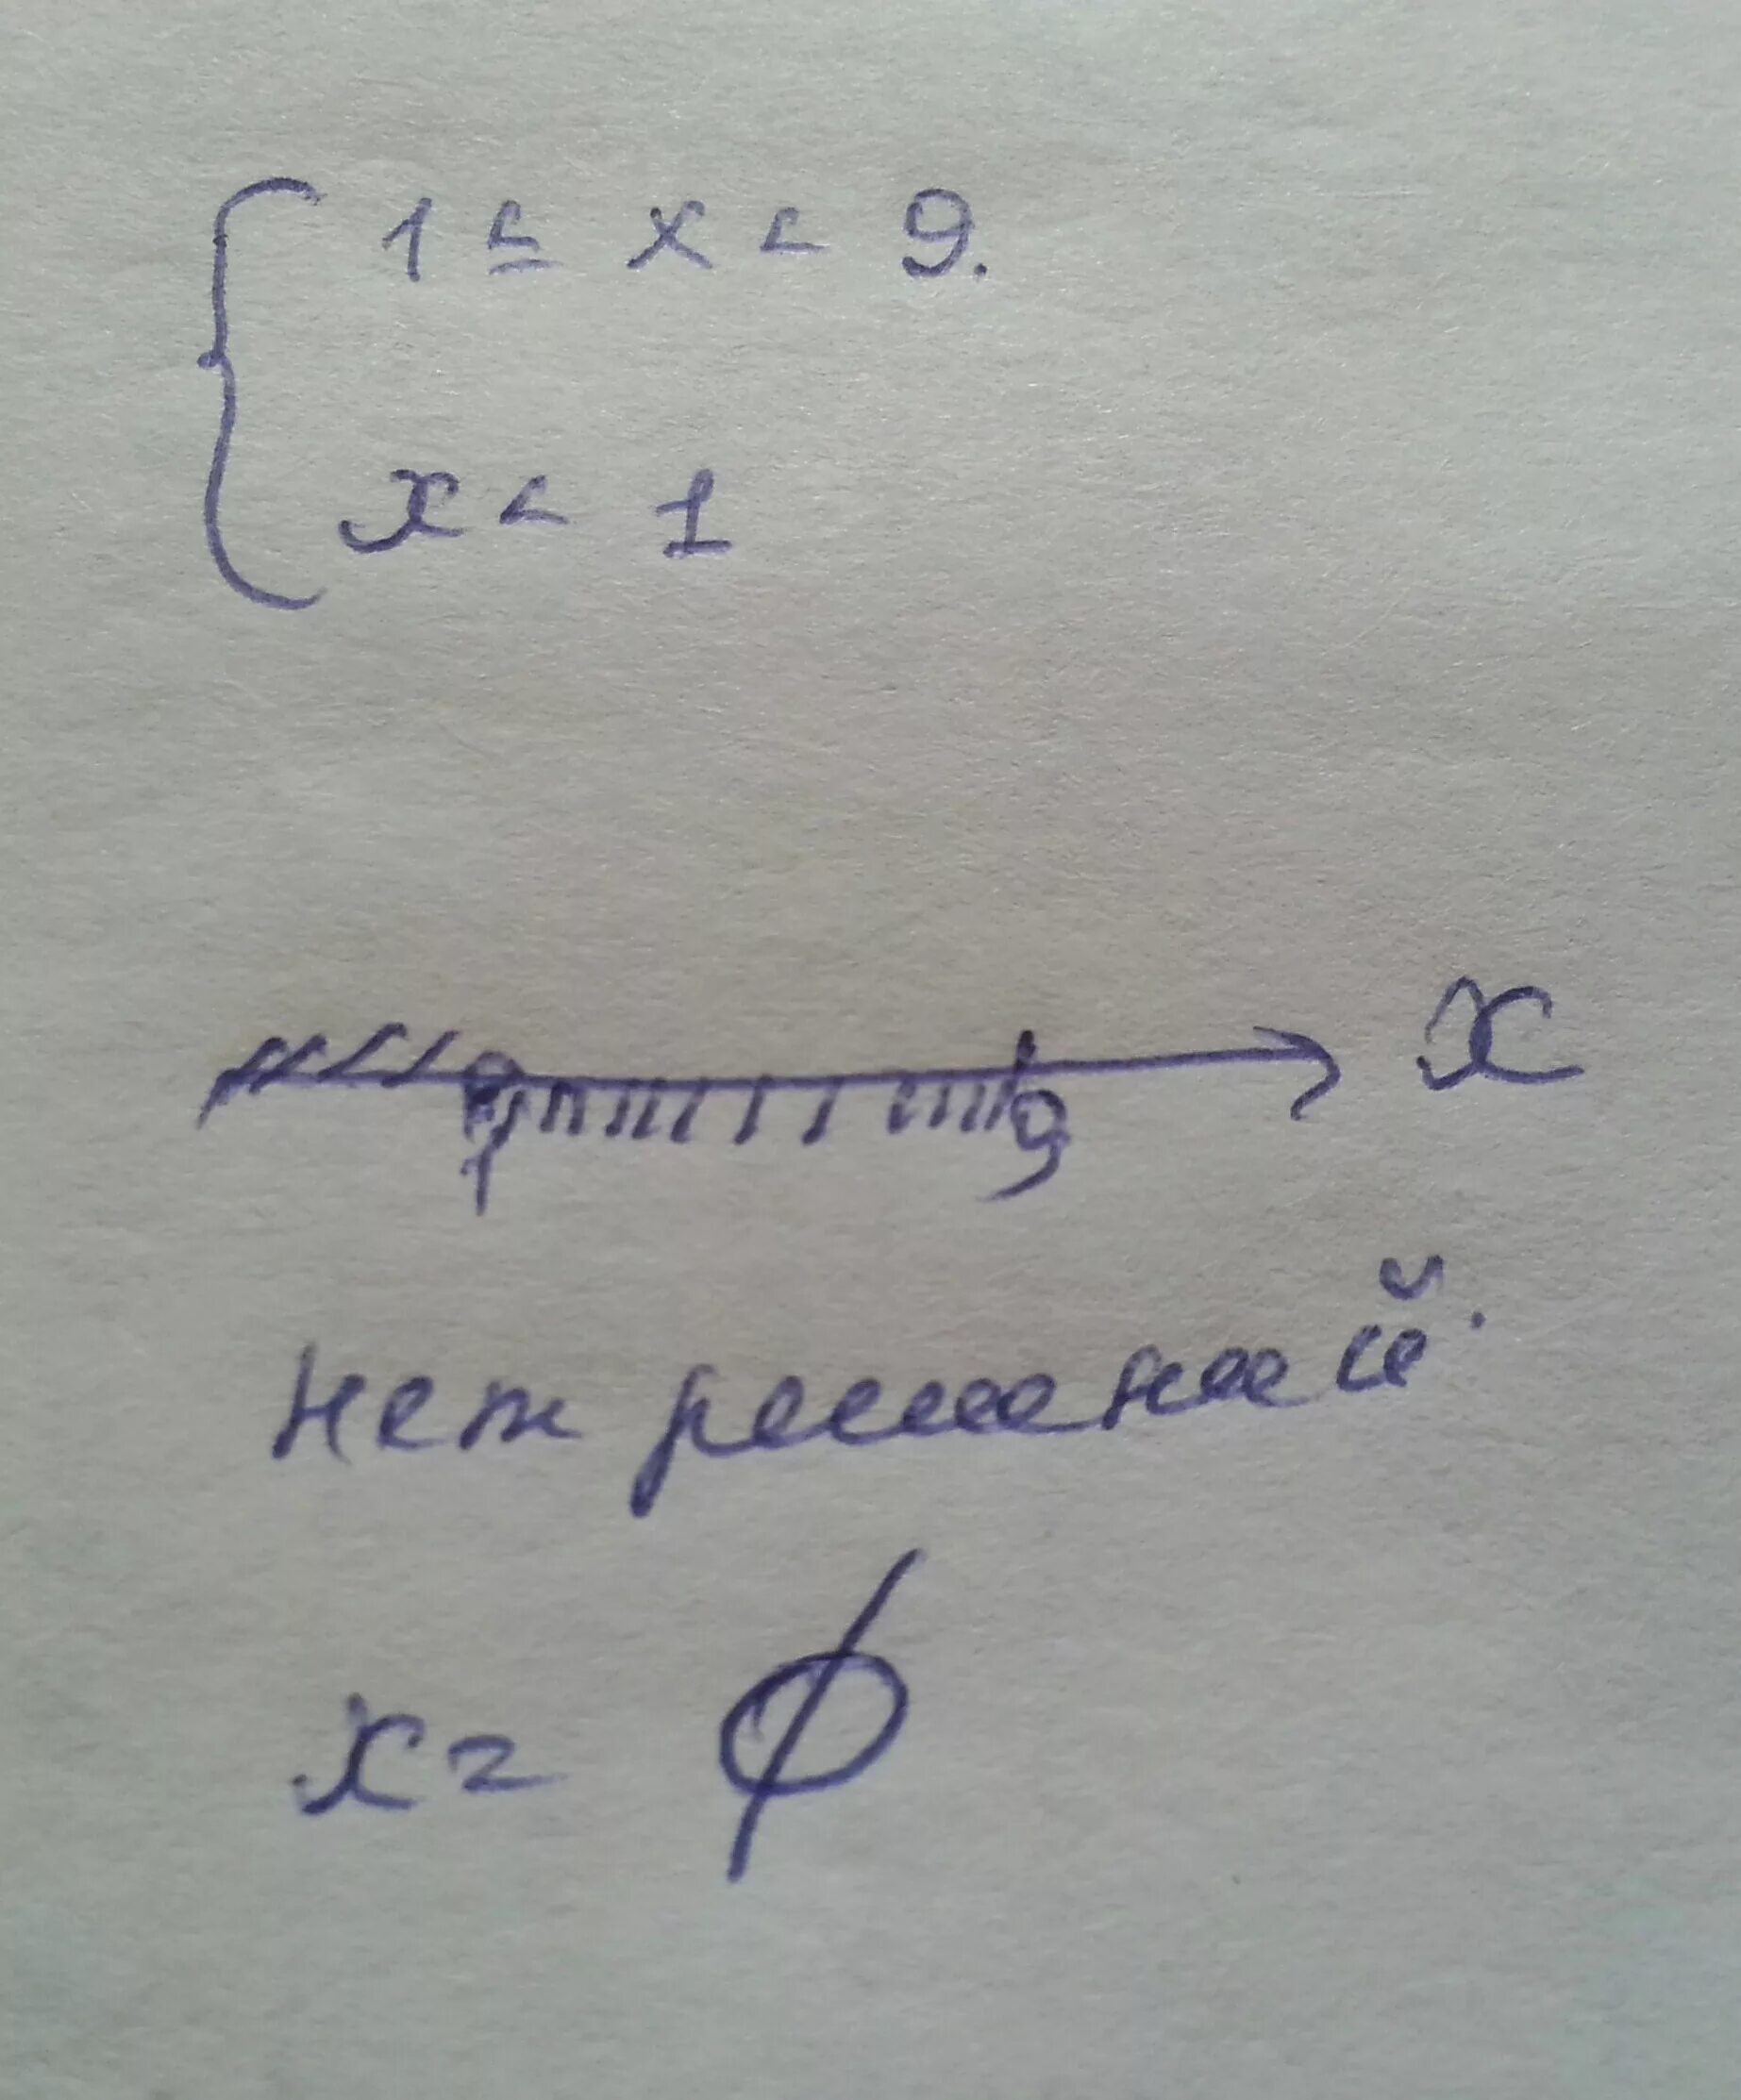 1 ≤ x < 9.
x < 1
x
1 9
нет решений.
x = ∅